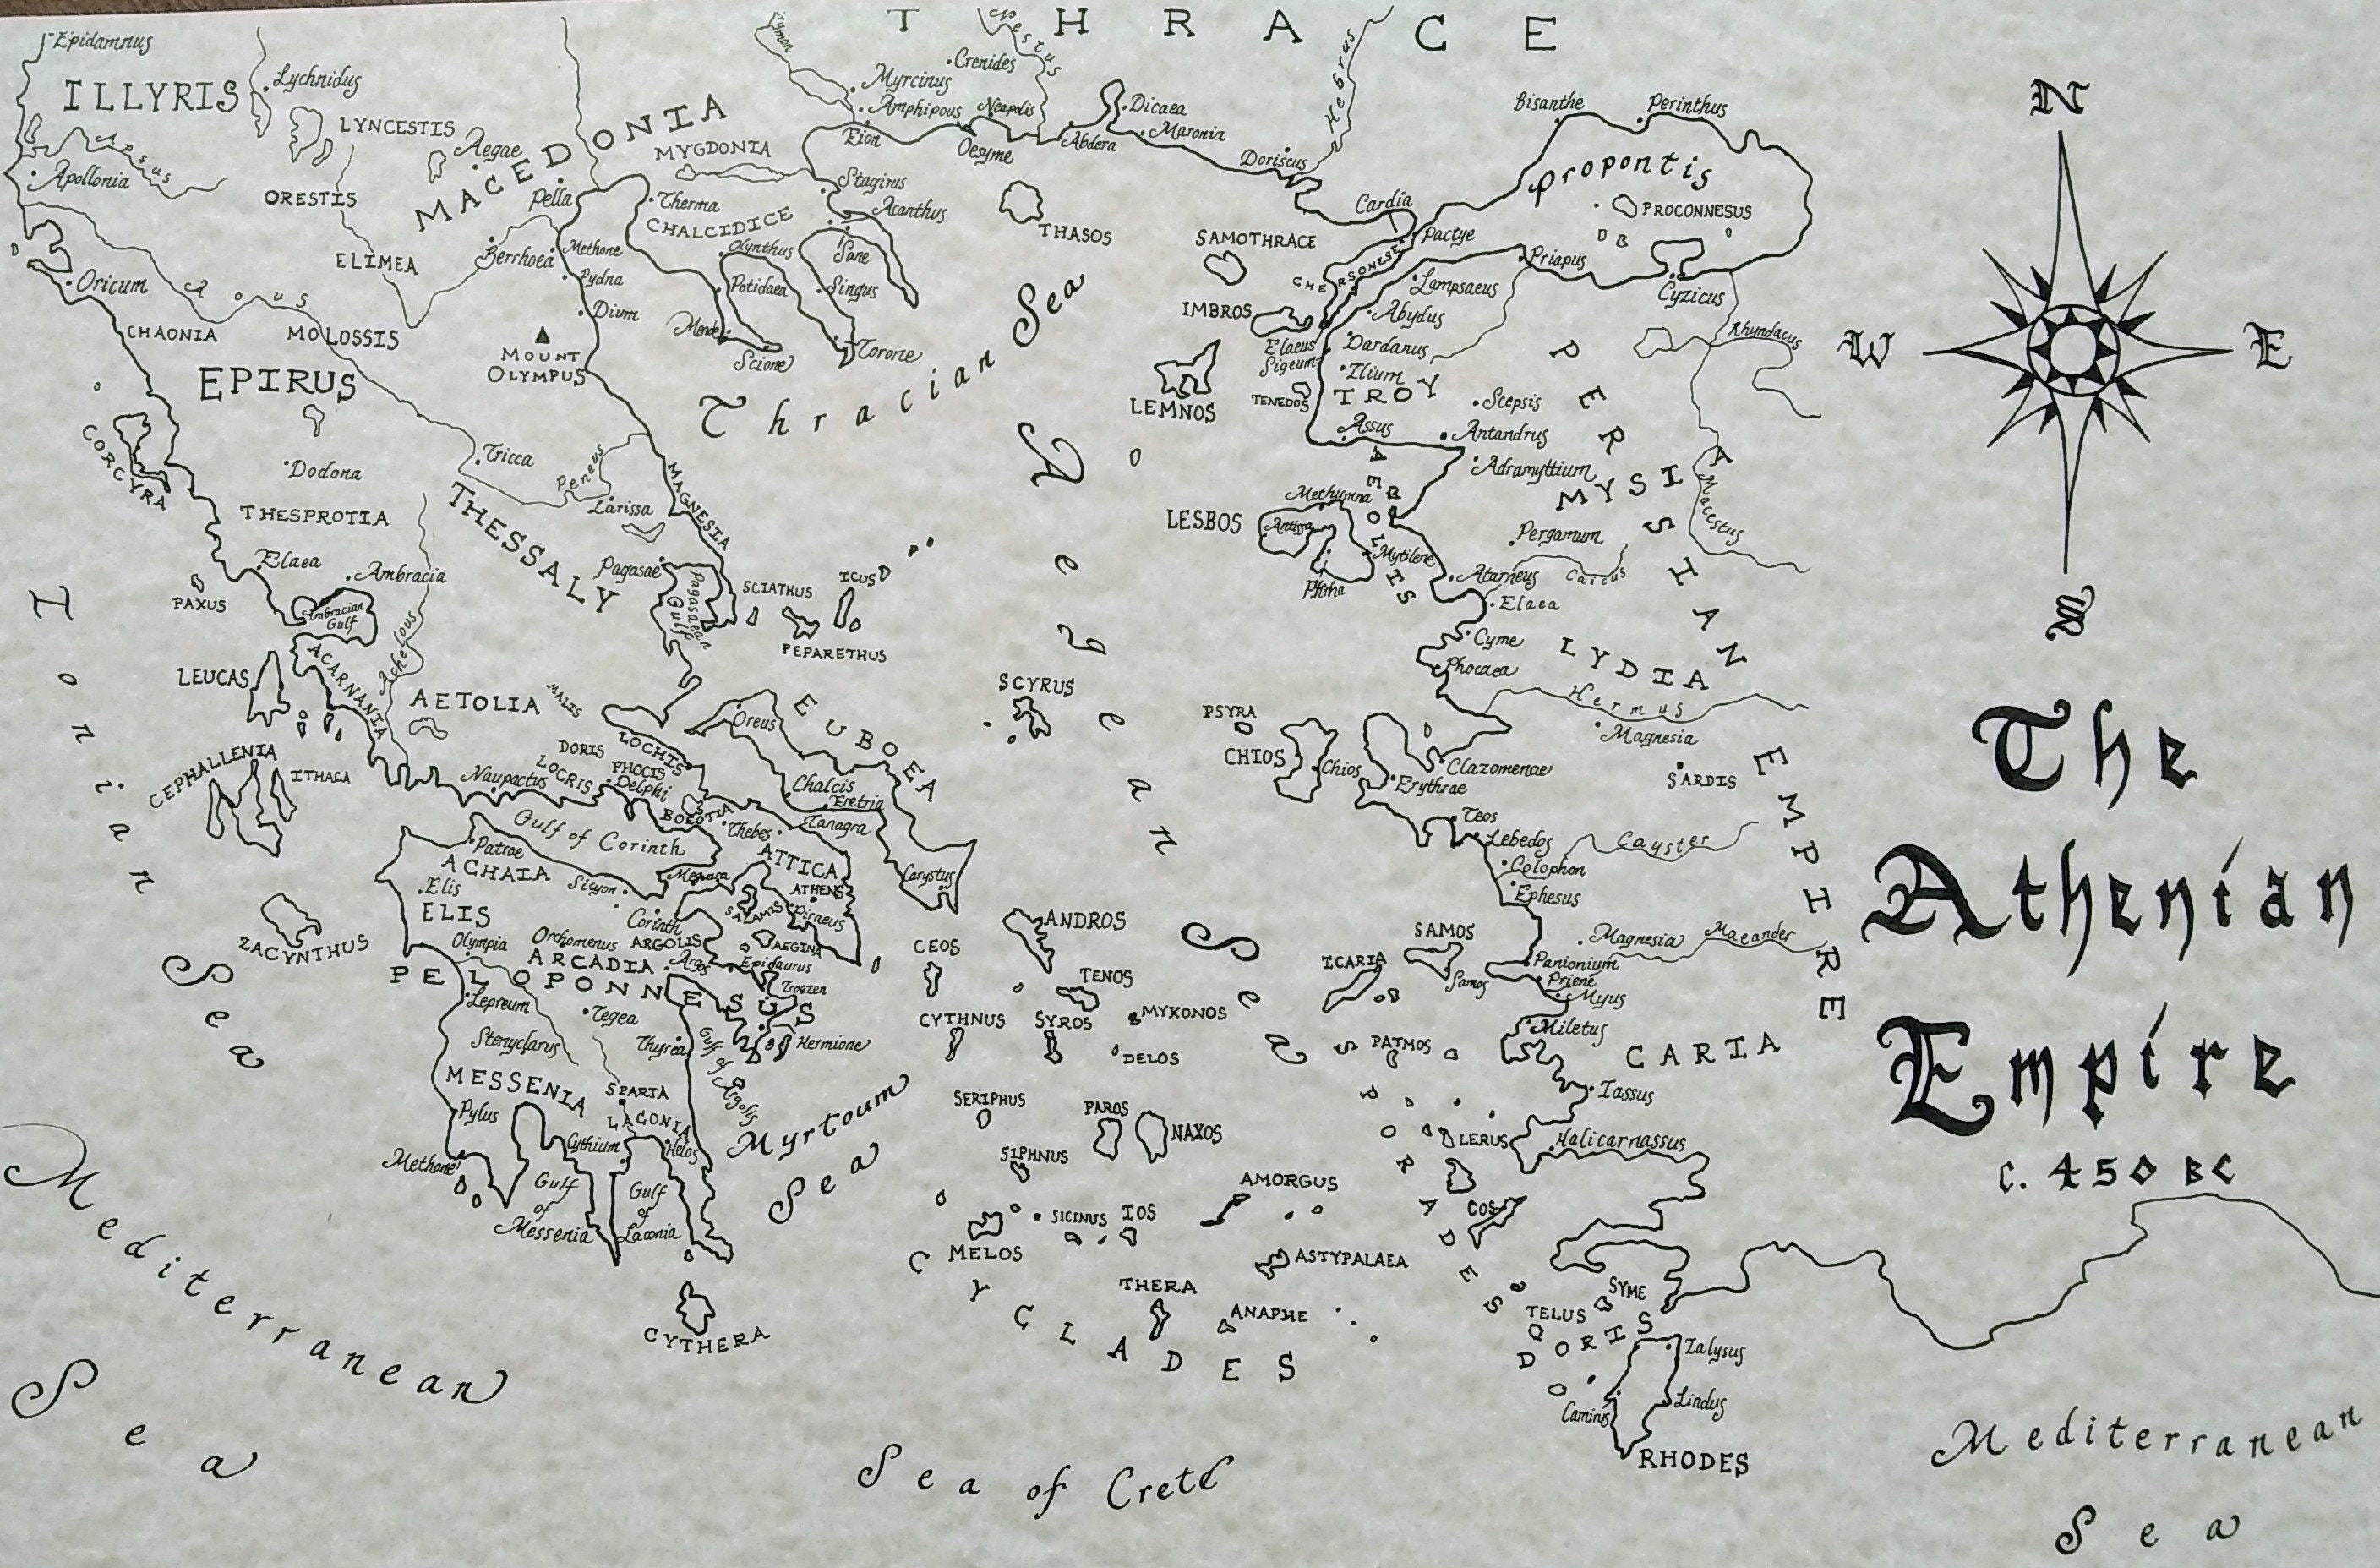 THRACE
Epidamnus
Strymon
Nestus
Hebrus
Crenides
Lychnidus
Myrcinus
ILLYRIS
Amphipous
Neapolis
Dicaea
Bisanthe
Perinthus
N
LYNCESTIS
Aegae
MACEDONIA
MYGDONIA
Eion
Oesyme
Abdera
Maronia
Doriscus
Propontis
Apsus
Apollonia
ORESTIS
Pella
Therma
Stagirus
Acanthus
CHALCIDICE
THASOS
Cardia
PROCONNESUS
SAMOTHRACE
Pactye
ELIMEA
Berrhoea
Methone
Olynthus
Sane
Pydna
Potidaea
Singus
CHERSONESE
Priapus
Lampsaeus
Cyzicus
Oricum
Aous
Dium
Mende
Scione
Torone
Thracian Sea
IMBROS
Abydus
CHAONIA
MOLOSSIS
MOUNT
OLYMPUS
Elaeus
Sigeum
Dardanus
Rhyndacus
W
E
EPIRUS
LEMNOS
TENEDOS
Ilium
TROY
Scepsis
PERSIAN EMPIRE
CORCYRA
Assus
Antandrus
Dodona
Tricca
Peneus
Larissa
MAGNESIA
Adramyttium
MYSIA
Macestus
THESPROTIA
THESSALY
LESBOS
Methymna
Antissa
Mytilene
AEOLIS
Pergamum
Elaea
Ambracia
Pagasae
Pagasaean
Gulf
SCIATHUS
ICUS
PEPARETHUS
Atarneus
Caicus
Elaea
PAXUS
Ambracian
Gulf
S
Cyme
Phocaea
LYDIA
Ionian Sea
LEUCAS
ACARNANIA
Achelous
AETOLIA
MALIS
SCYRUS
Aegean Sea
Hermus
Oreus
EUBOEA
PSYRA
CHIOS
Chios
Magnesia
SARDIS
The
Athenian
Empire
c. 450 BC
CEPHALLENIA
ITHACA
DORIS
LOCRIS
PHOCIS
LOCRIS
Delphi
Naupactus
Chalcis
Eretria
BOEOTIA
Thebes
Tanagra
Clazomenae
Erythrae
Teos
Lebedos
Cayster
Gulf of Corinth
Patrae
ACHAIA
Sicyon
Megara
ATTICA
ATHENS
Piraeus
SALAMIS
Carystus
Colophon
Ephesus
Elis
ELIS
ZACYNTHUS
Corinth
Olympia
Orchomenus
ARGOLIS
AEGINA
ARCADIA
Argos
Epidaurus
Troezen
CEOS
ANDROS
TENOS
MYKONOS
ICARIA
SAMOS
Samos
Magnesia
Maeander
Panionium
Priene
Myus
PELOPONNESUS
Lepreum
Tegea
Hermione
Gulf of Argolis
CYTHNUS
SYROS
DELOS
PATMOS
Miletus
CARIA
Stenyclarus
Thyrea
MESSENIA
SPARTA
LACONIA
Pylus
Gythium
Helos
Methone
Gulf
of
Messenia
Gulf
of
Laconia
Myrtoum
Sea
SERIPHUS
PAROS
NAXOS
SIPHNUS
Iassus
LERUS
Halicarnassus
SPORADES
AMORGUS
COS
MELOS
SICINUS
IOS
ASTYPALAEA
THERA
ANAPHE
CYTHERA
CYCLADES
SYME
TELUS
DORIS
Ialysus
Lindus
Camirus
RHODES
Mediterranean
Sea
Sea of Crete
Mediterranean
Sea